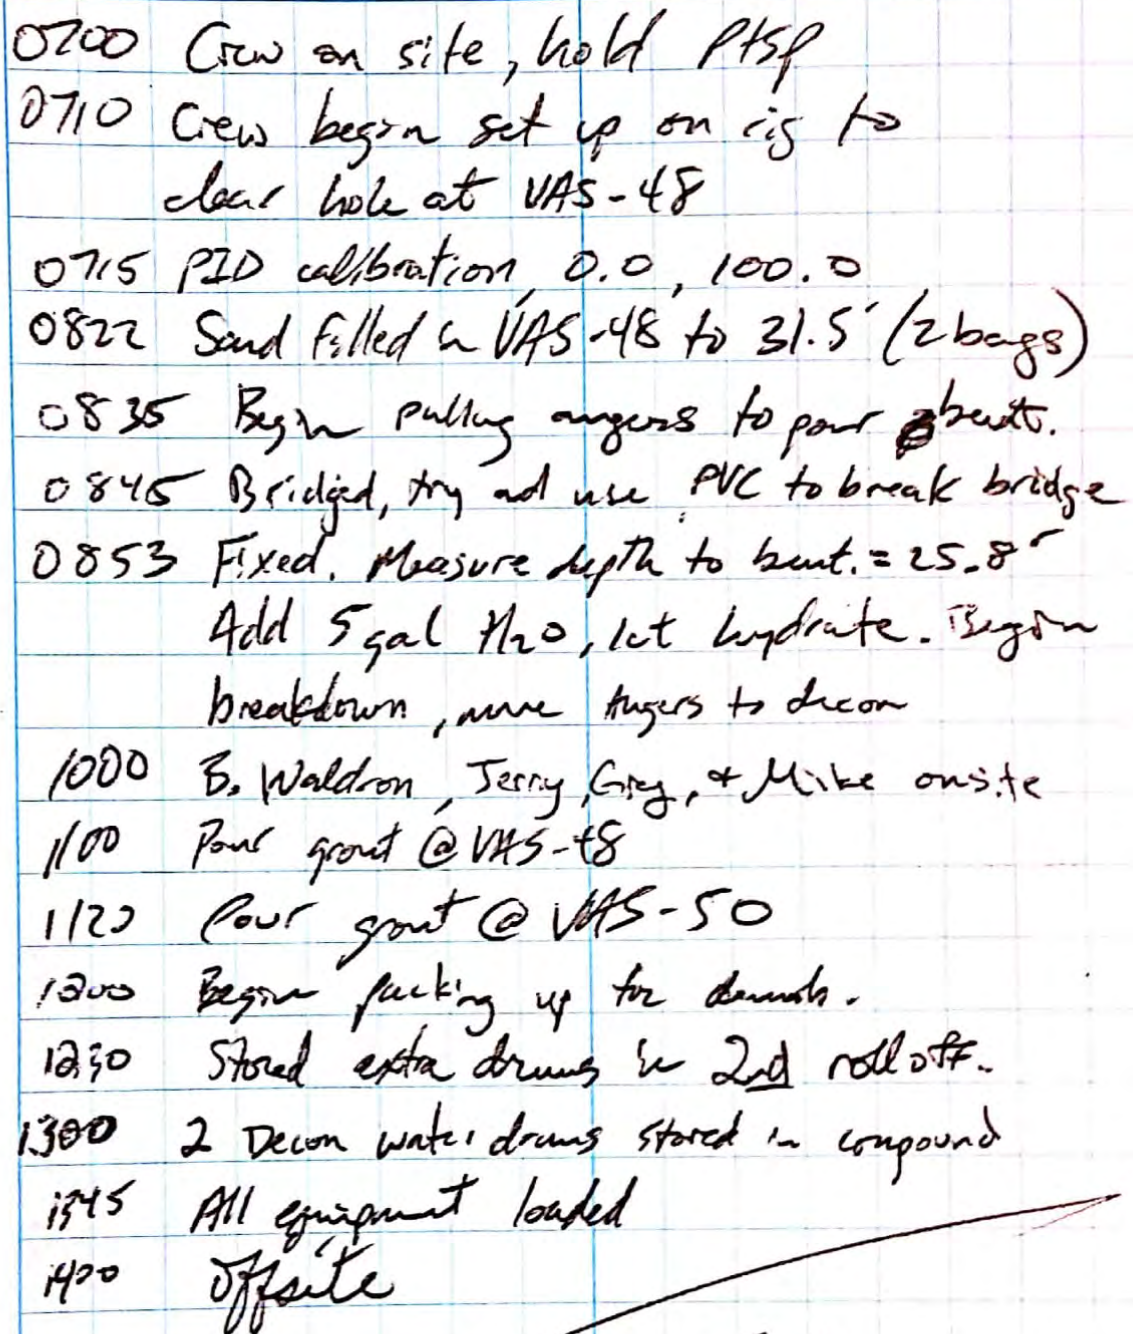 0700 Crew on site, hold PTSP
0710 Crew begin set up on rig to
clear hole at VAS-48
0715 PID calibration, 0.0, 100.0
0822 Sand filled in VAS-48 to 31.5' (2 bags)
0835 Begin pulling augers to pour bent.
0845 Bridged, try and use PVC to break bridge
0853 Fixed. Measure depth to bent. = 25.8'
Add 5 gal H2O, let hydrate. Begin
breakdown, move augers to decon
1000 B. Waldron, Jerry, Greg, & Mike onsite
1100 Pour grout @ VAS-48
1120 Pour grout @ VAS-50
1200 Begin packing up for demob.
1230 Stored extra drums in 2nd rolloff.
1300 2 Decon water drums stored in compound
1345 All equipment loaded
1400 Offsite